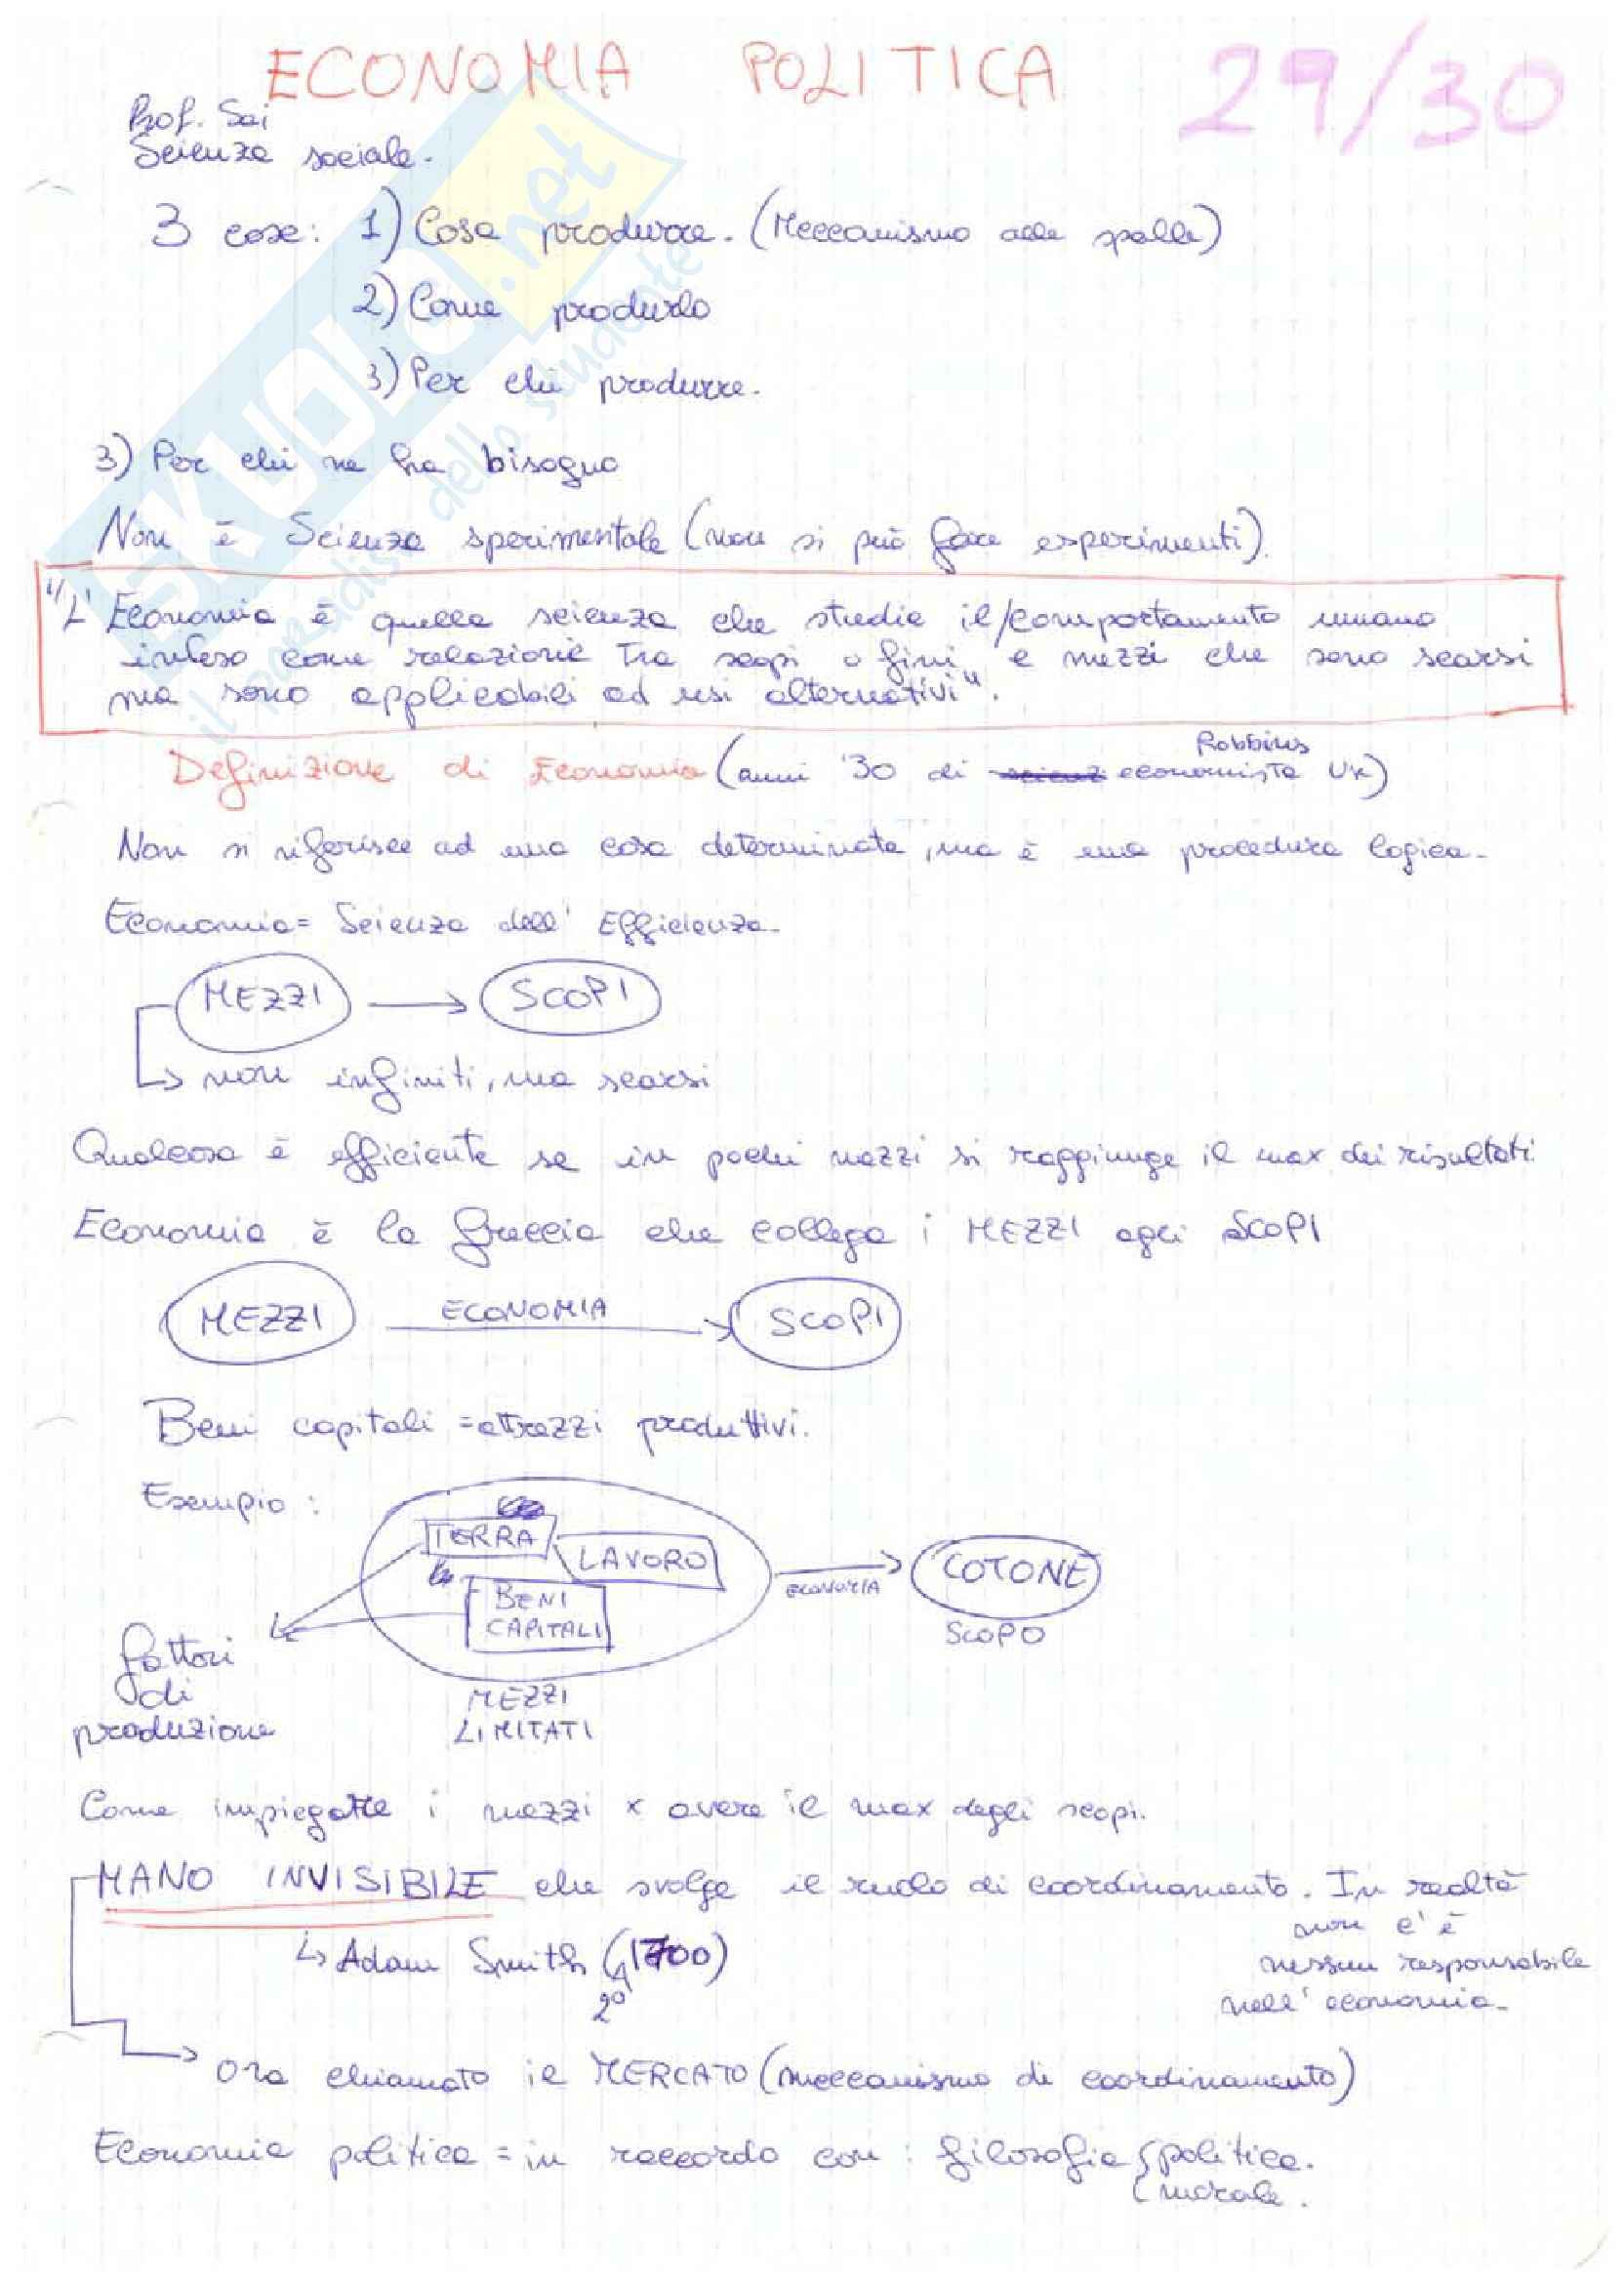 ECONOMIA POLITICA 29/30
Prof. Sai
Scienza sociale.
3 cose: 1) Cosa produrre. (Meccanismo alle spalle)
2) Come produrlo
3) Per chi produrre.
3) Per chi ne ha bisogno
Non è Scienza sperimentale (non si può fare esperimenti).
"L'Economia è quella scienza che studia il comportamento umano
inteso come relazione tra scopi o fini e mezzi che sono scarsi
ma sono applicabili ad usi alternativi".
Robbins
Definizione di Economia (anni '30 di economista UK)
Non si riferisce ad una cosa determinata, ma è una procedura logica.
Economia = Scienza dell'Efficienza.
MEZZI → SCOPI
↳ non infiniti, ma scarsi
Qualcosa è efficiente se in pochi mezzi si raggiunge il max dei risultati.
Economia è la freccia che collega i MEZZI agli SCOPI
MEZZI ECONOMIA → SCOPI
Beni capitali = attrezzi produttivi.
Esempio:
TERRA
LAVORO
BENI
CAPITALI
ECONOMIA
COTONE
SCOPO
fattori
di
produzione
MEZZI
LIMITATI
Come impiegare i mezzi x avere il max degli scopi.
MANO INVISIBILE che svolge il ruolo di coordinamento. In realtà
non c'è
nessun responsabile
nell'economia.
↳ Adam Smith (1700)
2°
→ Ora chiamato il MERCATO (meccanismo di coordinamento)
Economia politica = in raccordo con: filosofia { politica.
morale.
SKUOLA.net
il paradiso dello studente